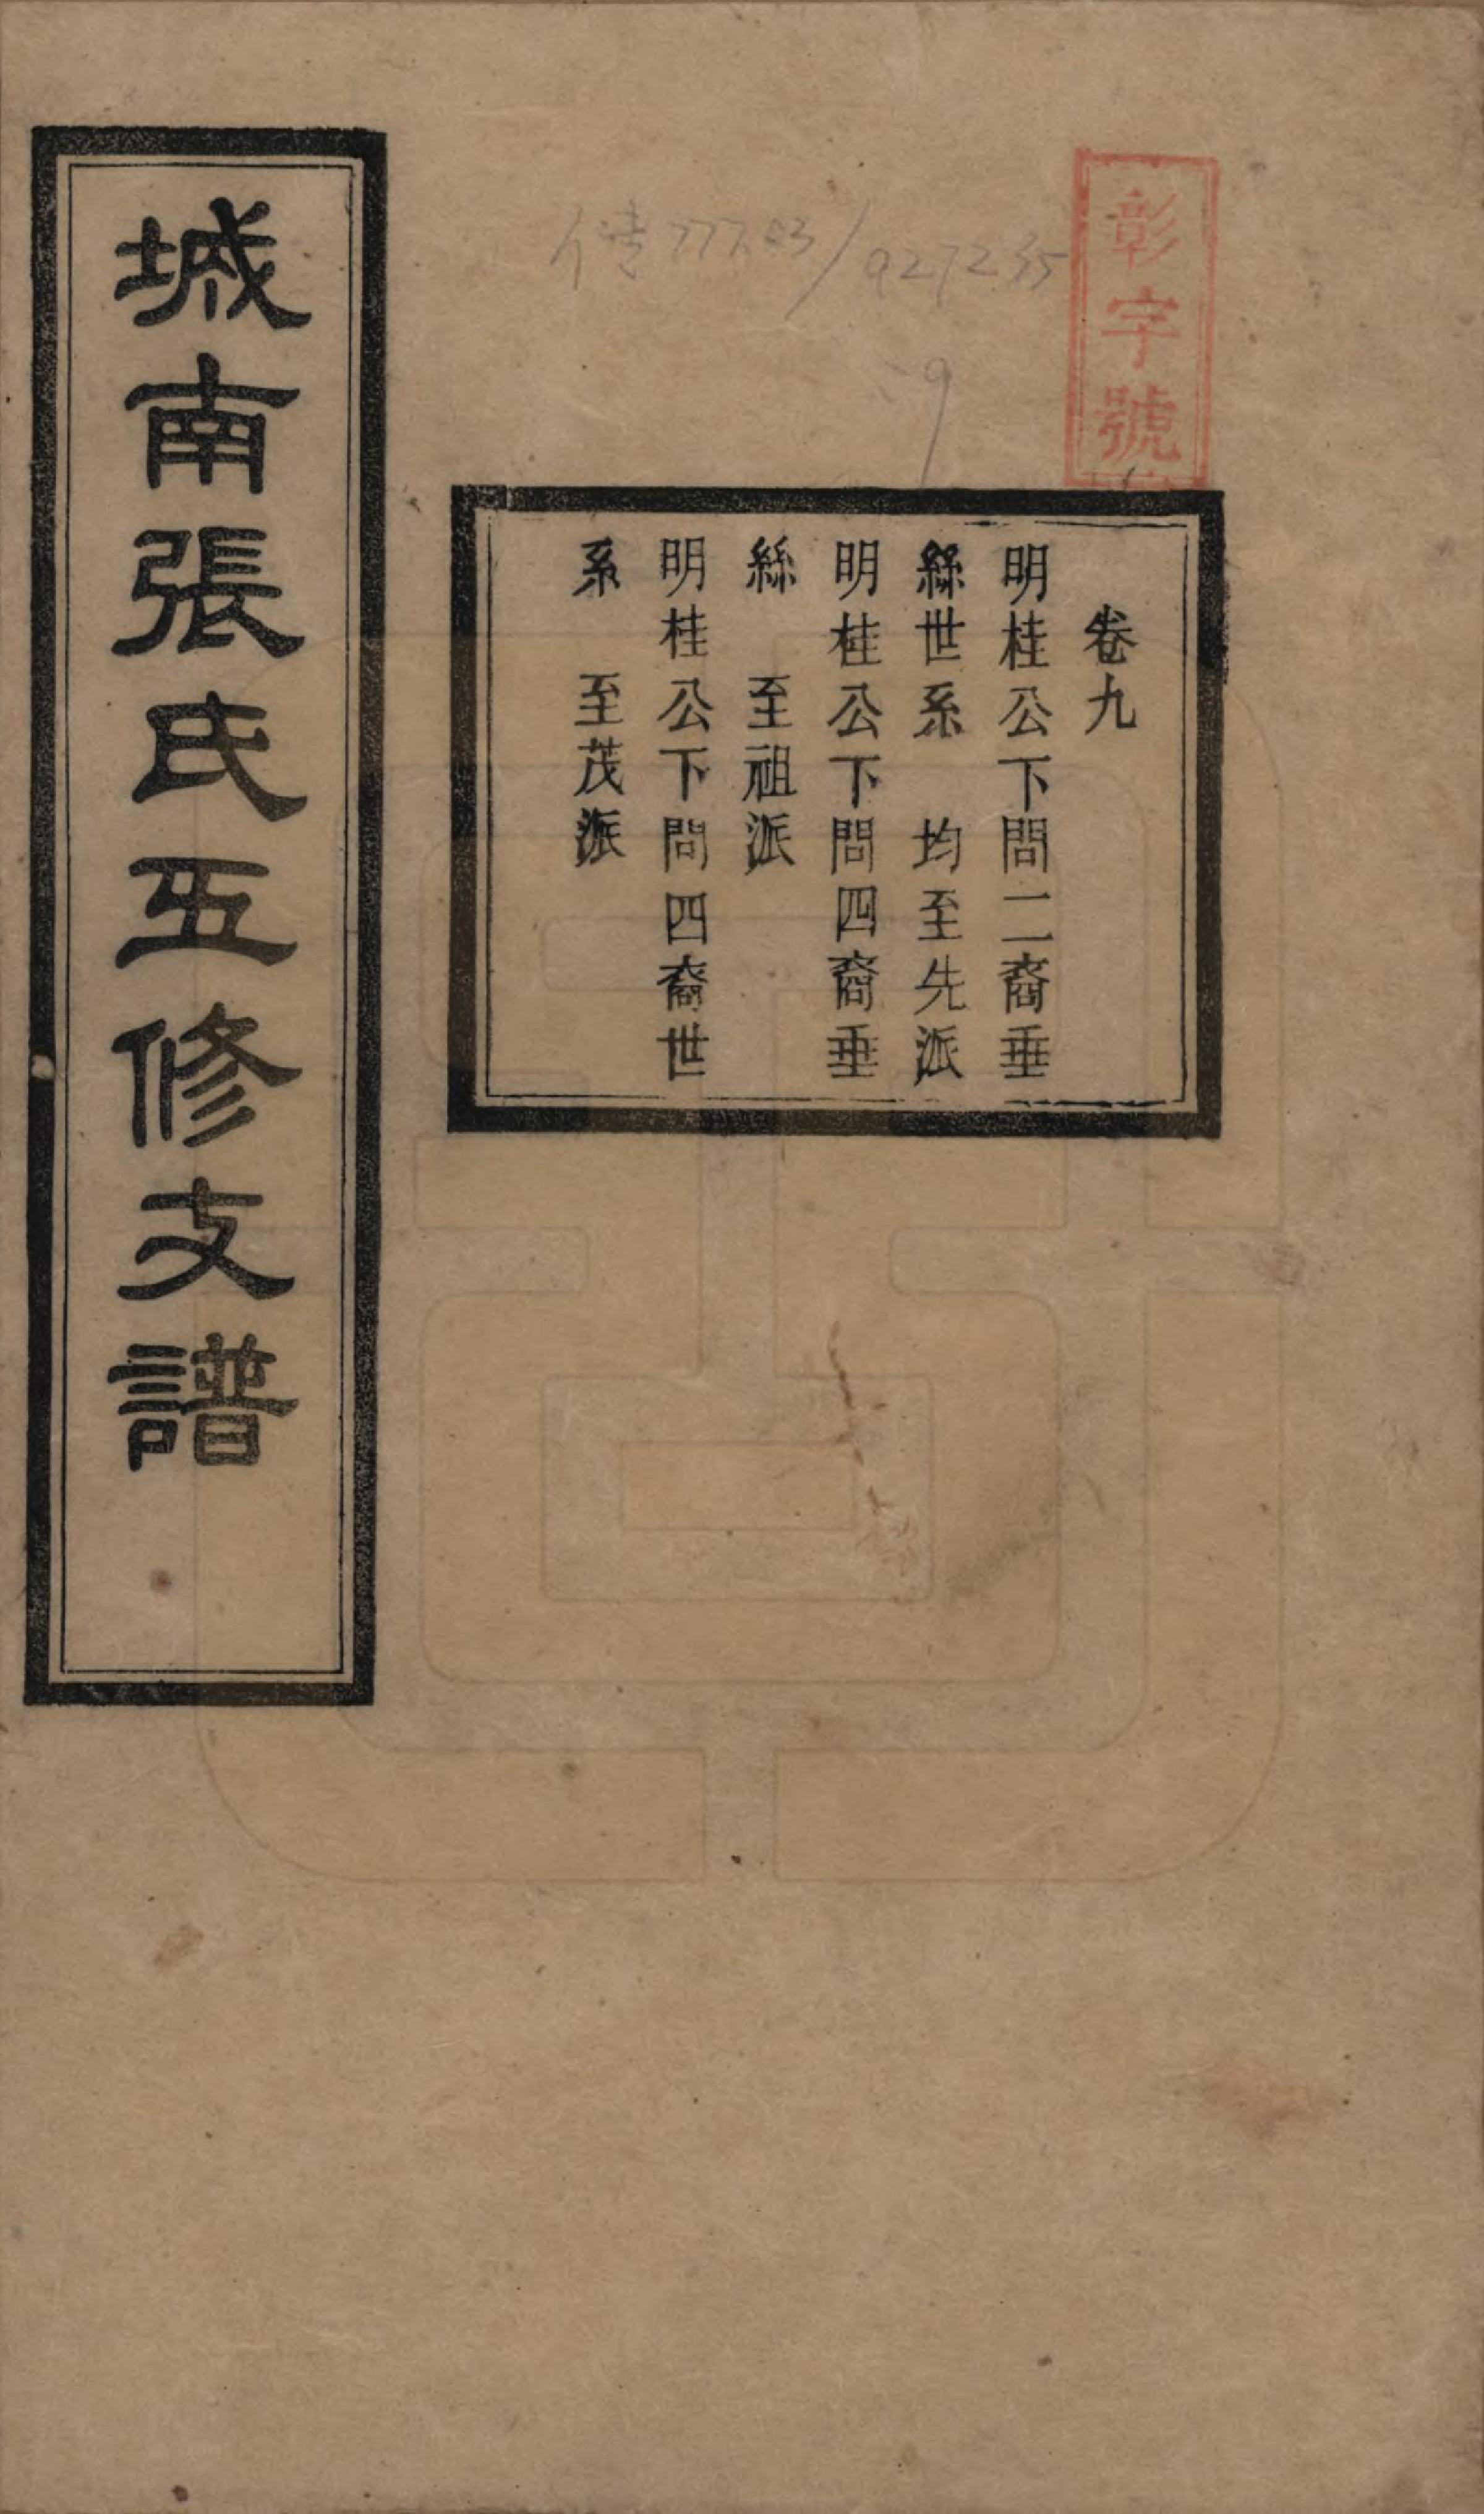 彰字號
傳777.03/927235
:9
卷九
明桂公下問二裔垂
絲世系　均至先派
明桂公下問四裔垂
絲　至祖派
明桂公下問四裔世
系　至茂派
城南張氏五修支譜